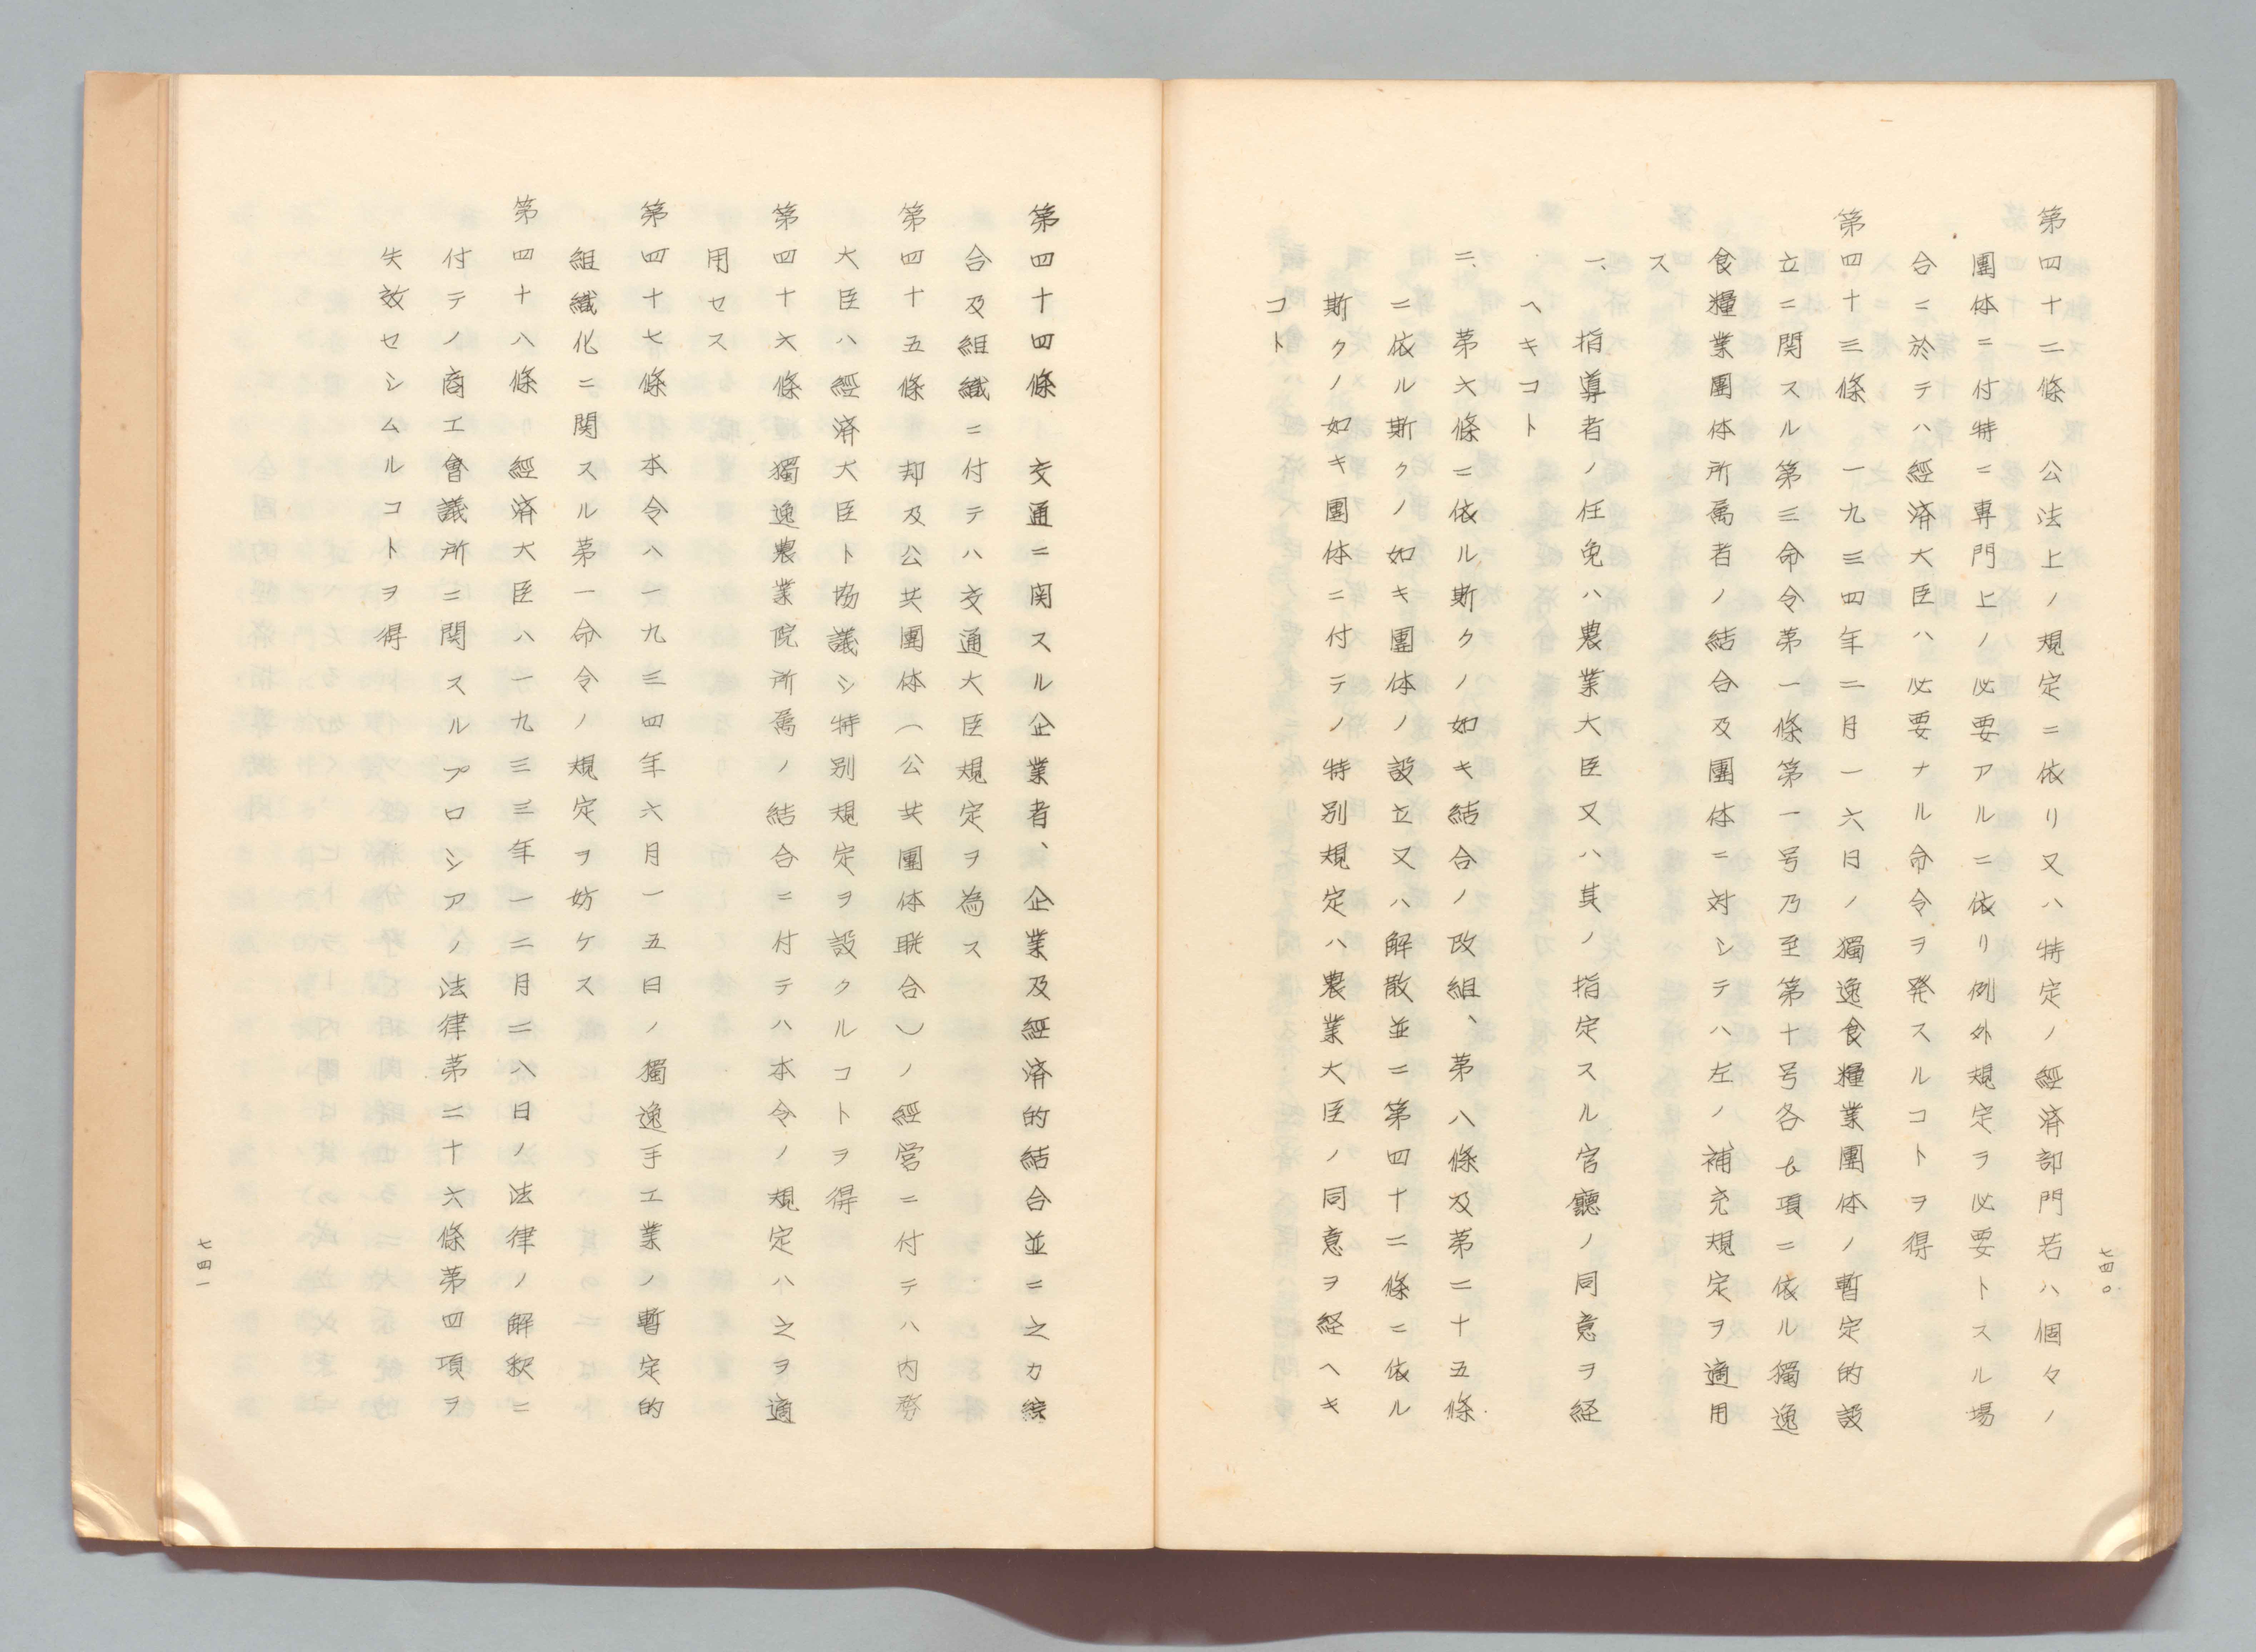 七四〇
第四十二條　公法上ノ規定ニ依リ又ハ特定ノ經済部門若ハ個々ノ
團体ニ付特ニ専門上ノ必要アルニ依リ例外規定ヲ必要トスル場
合ニ於テハ經済大臣ハ必要ナル命令ヲ発スルコトヲ得
第四十三條　一九三四年二月一六日ノ獨逸食糧業團体ノ暫定的設
立ニ関スル第三命令第一條第一号乃至第十号各b項ニ依ル獨逸
食糧業團体所属者ノ結合及團体ニ対シテハ左ノ補充規定ヲ適用
ス
一、指導者ノ任免ハ農業大臣又ハ其ノ指定スル官廳ノ同意ヲ経
ヘキコト
二、第六條ニ依ル斯クノ如キ結合ノ改組、第八條及第二十五條
ニ依ル斯クノ如キ團体ノ設立又ハ解散並ニ第四十二條ニ依ル
斯クノ如キ團体ニ付テノ特別規定ハ農業大臣ノ同意ヲ経ヘキ
コト
第四十四條　交通ニ関スル企業者、企業及經済的結合並ニ之カ綜
合及組織ニ付テハ交通大臣規定ヲ為ス
第四十五條　邦及公共團体（公共團体聯合）ノ經営ニ付テハ内務
大臣ハ經済大臣ト協議シ特別規定ヲ設クルコトヲ得
第四十六條　獨逸農業院所属ノ結合ニ付テハ本令ノ規定ハ之ヲ適
用セス
第四十七條　本令ハ一九三四年六月一五日ノ獨逸手工業ノ暫定的
組織化ニ関スル第一命令ノ規定ヲ妨ケス
第四十八條　經済大臣ハ一九三三年一二月二八日ノ法律ノ解釈ニ
付テノ商工會議所ニ関スルプロシアノ法律第二十六條第四項ヲ
失效セシムルコトヲ得
七四一